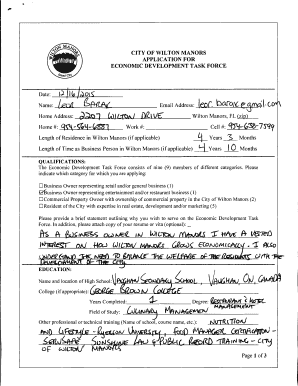 CITY OF WILTON MANORS
APPLICATION FOR
ECONOMIC DEVELOPMENT TASK FORCE
WILTON MANORS
Date: 12/16/2015
Name: Leor Barak Email Address: leor.barak@gmail.com
Home Address: 2207 WILTON DRIVE Wilton Manors, FL (zip)
Home #: 954-564-6887 Work #: Cell #: 954-638-7599
Length of Residence in Wilton Manors (if applicable) 4 Years 3 Months
Length of Time as Business Person in Wilton Manors (if applicable) 4 Years 10 Months
QUALIFICATIONS:
The Economic Development Task Force consists of nine (9) members of different categories. Please
indicate which category for which you are applying:
Business Owner representing retail and/or general business (1)
Business Owner representing entertainment and/or restaurant business (1)
Commercial Property Owner with ownership of commercial property in the City of Wilton Manors (2)
Resident of the City with expertise in real estate, development and/or marketing (5)
Please provide a brief statement outlining why you wish to serve on the Economic Development Task
Force. In addition, please attach copy of your resume or vitae (optional):
AS A BUSINESS OWNER IN WILTON MANORS I HAVE A VESTED
INTEREST ON HOW WILTON MANORS GROWS ECONOMICALLY. I ALSO
UNDERSTAND THE NEED TO BALANCE THE WELFARE OF THE RESIDENTS WITH THE
DEVELOPMENT OF THE CITY
EDUCATION:
Name and location of High School: VAUGHAN SECONDARY SCHOOL, VAUGHAN ON, CANADA
College (if appropriate): GEORGE BROWN COLLEGE
Years Completed: 1 Degree: RESTAURANT & HOTEL
MANAGEMENT
Field of Study: CULINARY MANAGEMENT
Other professional or technical training (Name of school, course name, etc.): NUTRITION
AND LIFESTYLE - RYERSON UNIVERSITY, FOOD MANAGER CERTIFICATION -
SERVSAFE SUNSHINE LAW & PUBLIC RECORD TRAINING - CITY
OF WILTON MANORS
Page 1 of 3